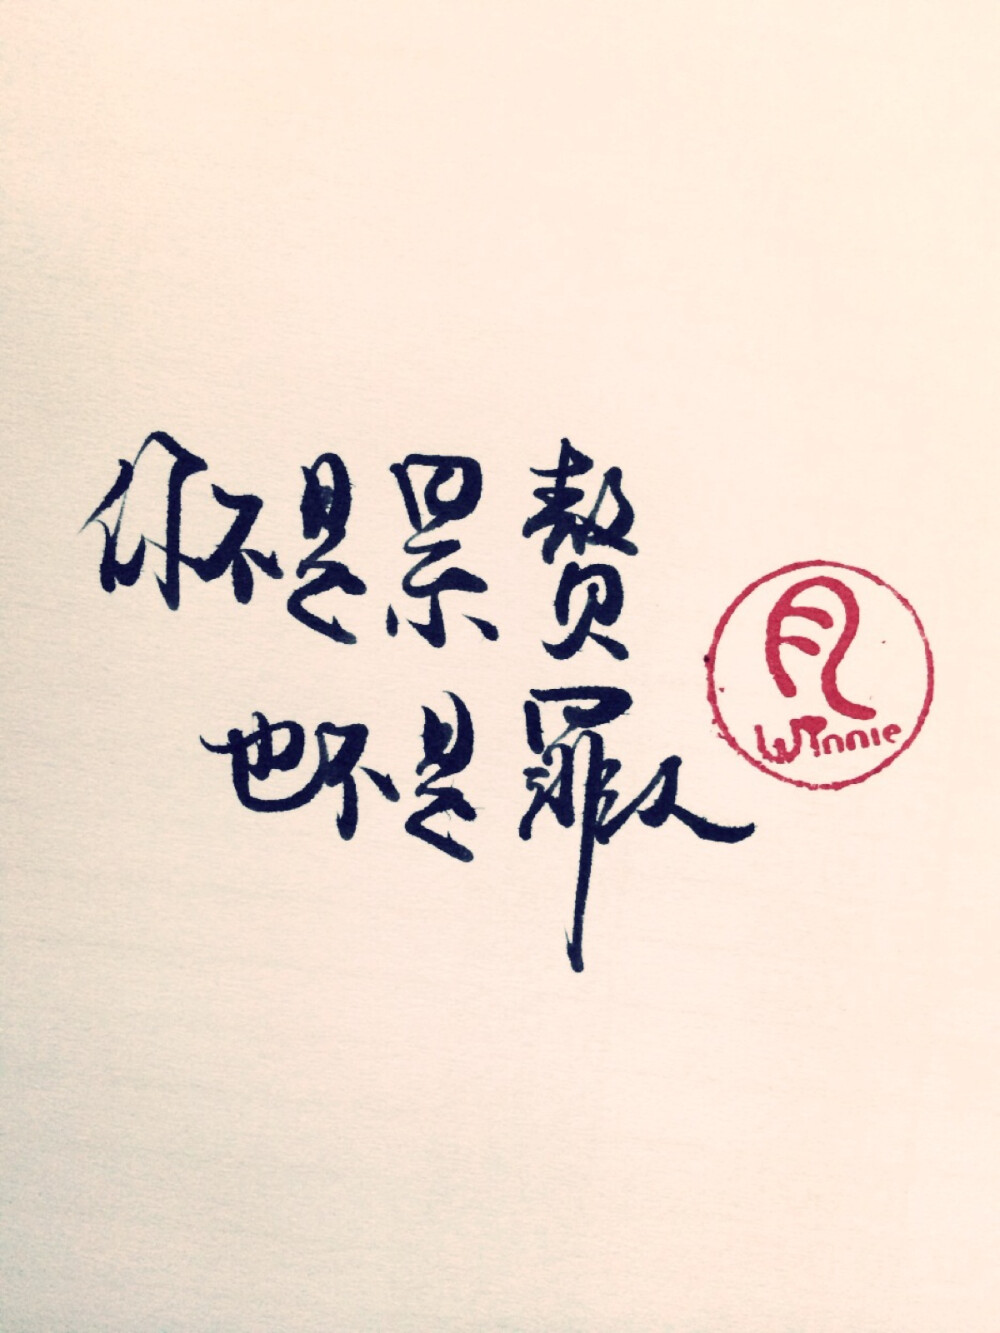 你不是累赘
也不是罪人
Winnie